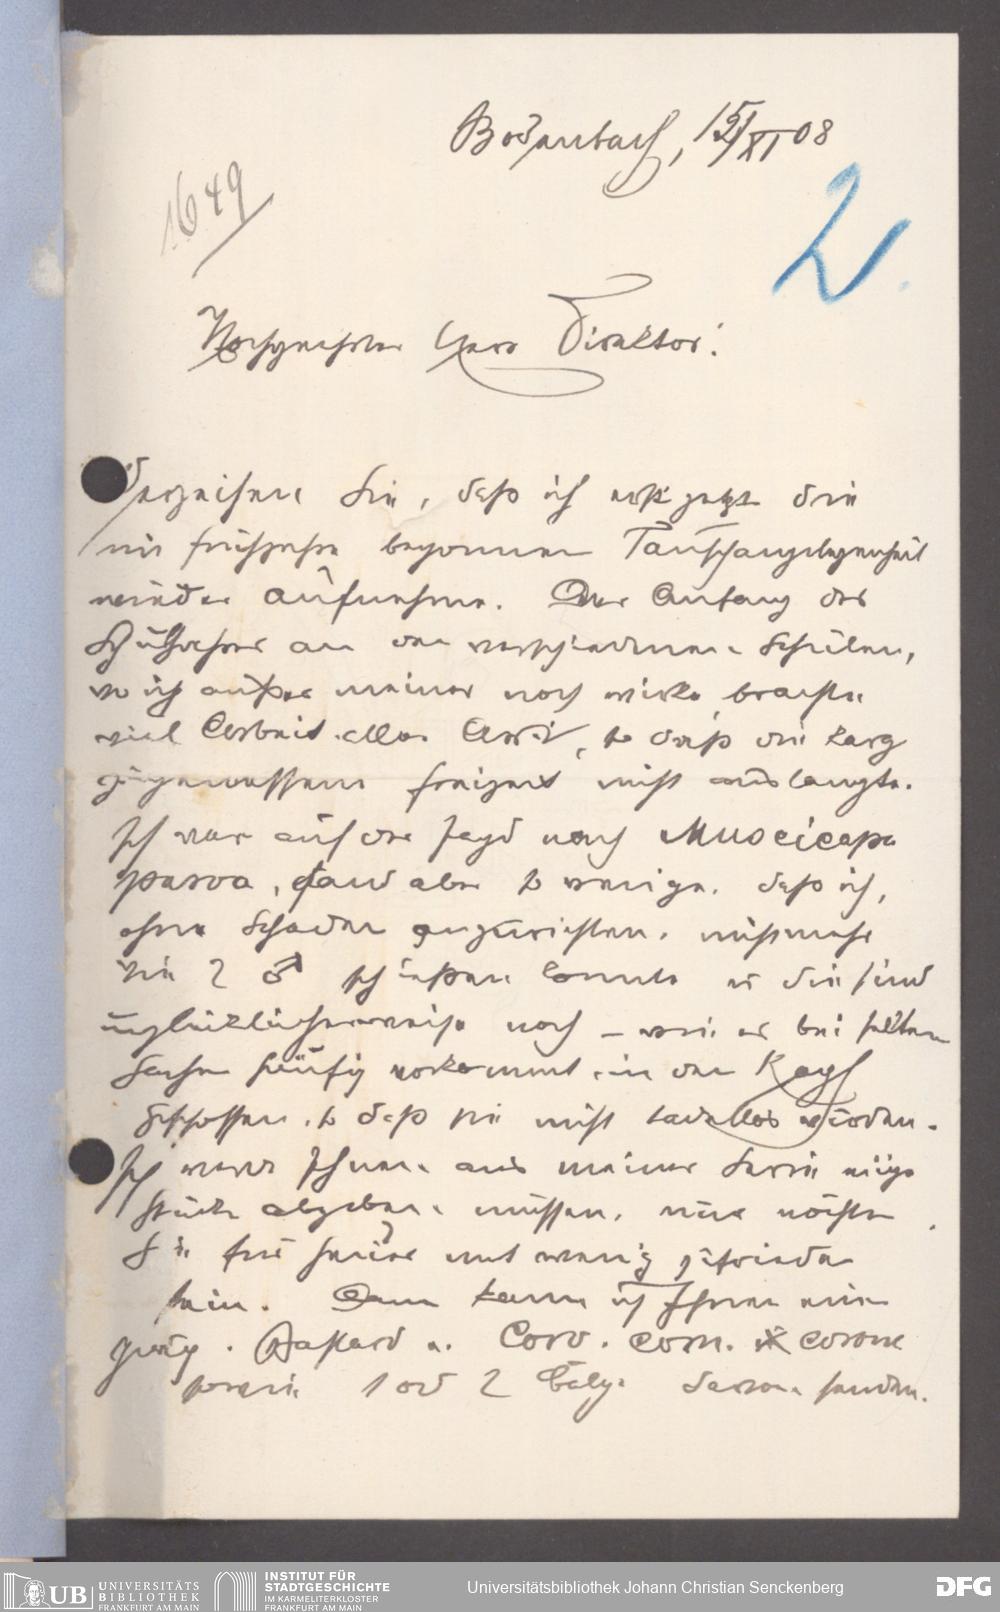 Bodenbach, 15/XI 08
1649
Hochgeehrter Herr Direktor!
Verzeihen Sie, daß ich erst jetzt die
im Frühjahre begonnene Tauschangelegenheit
wieder aufnehme. Der Anfang des
Schuljahres an den verschiedenen Schulen,
wo ich außer meiner noch wirke, brachte
viel Arbeit aller Art, so daß die karg
zugemessene Freizeit nicht auslangte.
Ich war auf der Jagd nach Muscicapa
parva, fand aber so wenige, daß ich,
ohne Schaden anzurichten, nicht mehr
wie 2 ♂ schießen konnte u die sind
unglücklicherweise noch – wie es bei selten
Sachen häufig vorkommt in den Kopf
geschossen, so daß sie nicht tadellos wurden.
Ich werde Ihnen aus meiner Serie einige
Stücke abgeben müssen, nur möchten
Sie für heuer mit wenig zufrieden
sein. Dann kann ich Ihnen ein
Bastard v. Corv. corn. x corone
sowie 1 od 2 Bälge davon senden.
UB UNIVERSITÄTS
BIBLIOTHEK
FRANKFURT AM MAIN
INSTITUT FÜR
STADTGESCHICHTE
IM KARMELITERKLOSTER
FRANKFURT AM MAIN
Universitätsbibliothek Johann Christian Senckenberg
DFG